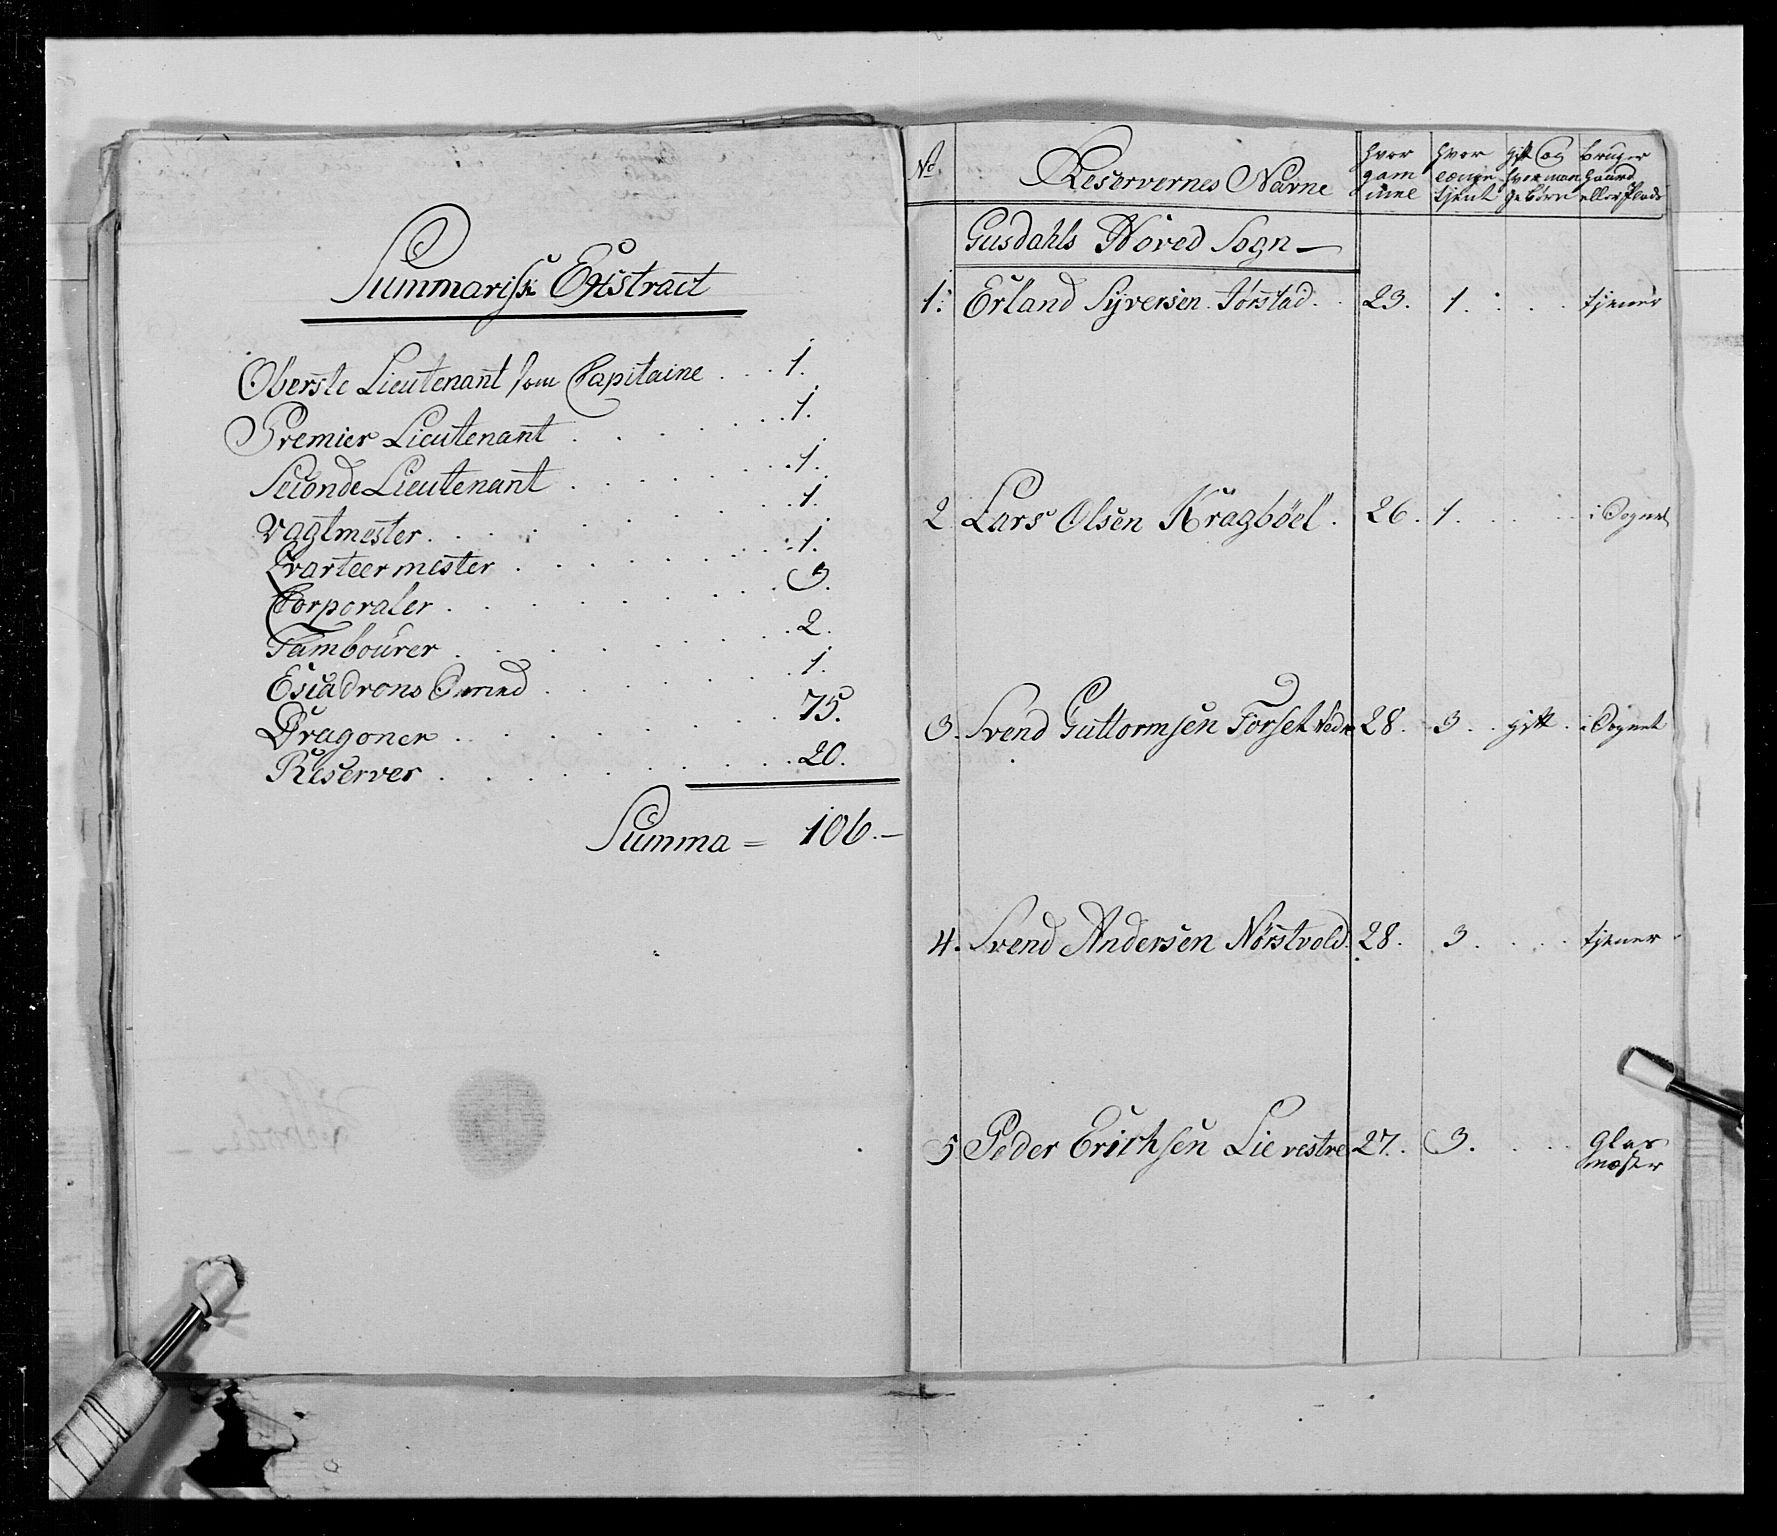 Summarisk Exstract
Oberste Lieutenant som Capitaine . . . 1.
Premier Lieutenant . . . . . . 1.
Seconde Lieutenant . . . . . . 1.
Vagtmester . . . . . . . . 1.
Qvarteermester . . . . . . . 1.
Corporaler . . . . . . . . 3.
Tambourer . . . . . . . . 2.
Escadrons Smed . . . . . . . 1.
Dragoner . . . . . . . . 75.
Reserver . . . . . . . . . 20.
Summa = 106.—
No. Reservernes Navne hvor gammel hvor længe tjent gift og hvor mange børn bruger Gaard eller Plads
Gusdahls Hoved Sogn —
1. Erland Syversen Jørstad . . 23. 1. . . . tjener
2 Lars Olsen Kragbøel . 26. 1. . . . i Sognet
3. Svend Guttormsen Forset 28. 3. . gift . i Sognet
4. Svend Andersen Nørstvold. 28. 3. . . . tjener
5 Peder Erichsen Lie vestre 27. 3. . . . Glas
mester